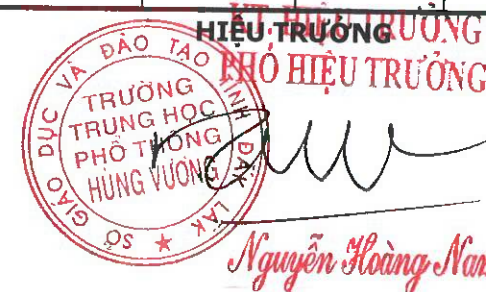 HIỆU TRƯỞNG
KT. HIỆU TRƯỞNG
PHÓ HIỆU TRƯỞNG
SỞ GIÁO DỤC VÀ ĐÀO TẠO TỈNH ĐẮK LẮK
TRƯỜNG
TRUNG HỌC
PHỔ THÔNG
HÙNG VƯƠNG
Nguyễn Hoàng Nam